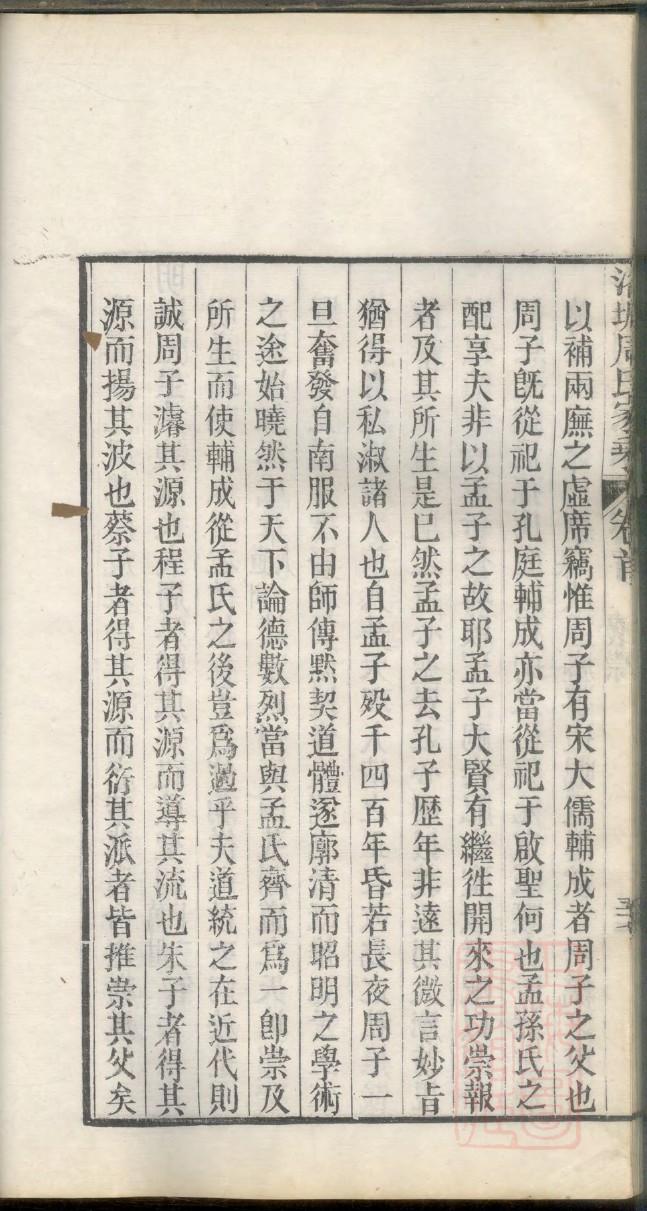 周氏家乘 卷首
以補兩廡之虛席竊惟周子有宋大儒輔成者周子之父也
周子旣從祀于孔庭輔成亦當從祀于啟聖何也孟孫氏之
配享夫非以孟子之故耶孟子大賢有繼徃開來之功崇報
者及其所生是已然孟子之去孔子歴年非遠其微言妙㫖
猶得以私淑諸人也自孟子殁千四百年昏若長夜周子一
旦奮發自南服不由師傳黙契道體遂廓清而昭明之學術
之途始曉然于天下論德數烈當與孟氏齊而爲一卽崇及
所生而使輔成從孟氏之後豈爲過乎夫道統之在近代則
誠周子濬其源也程子者得其源而導其流也朱子者得其
源而揚其波也蔡子者得其源而衍其派者皆推崇其父矣